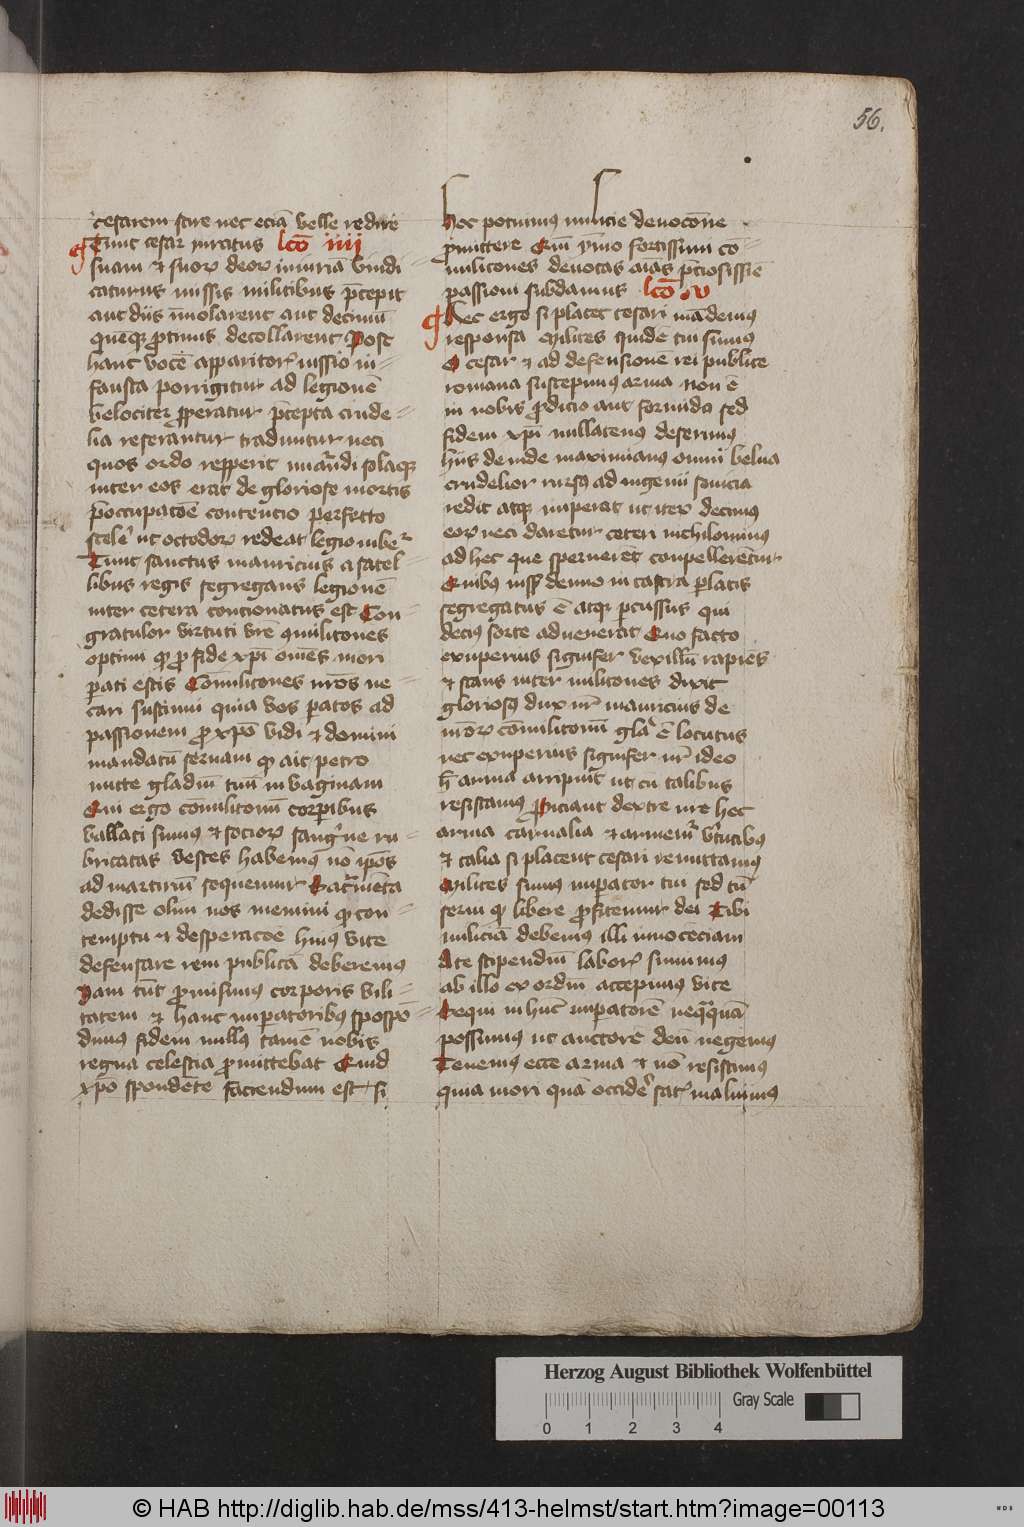 56.
cesarem scire nec eciā velle redire
Tunc cesar yrritatus lc̄o iiii
suam et suoꝝ deoꝝ iniuriā vindi
caturus missis militibus p̄cepit
aut diis īmolarent aut decimū
quēqꝫ ꝓtinus decollarent Post
hanc vocē apparitoꝝ iussio in-
fausta porrigitur ad legionē
velociter ꝓperatur p̄cepta crude-
lia referantur traduntur neci
quos ordo repperit
inter eos erat de gloriose mortis
p̄occupatōe contentio perfecto
scelē ut octodoꝝ redeat legio iubeᷣ
Tunc sanctus mauricius a satel-
libus regis segregans legionē
inter cetera concionatus est Con
gratulor virtuti vr̄e ꝯmilitones
optimi qꝫ ꝓ fide xp̄i om̄es mori
parati estis Cōmilitones nr̄os ne-
cari sustinui quia vos paratos ad
passionem ꝓ xp̄o vidi et domini
mandatū seruaui qꝫ ait petro
mitte gladiū tuū in vaginam
Qui ergo cōmilitonū corporibus
vallati sumus et socioꝝ sangⁱne ru-
bricatas vestes habemus nō ip̄os
ad martiriū sequemur Sacr̄menta
dedisse olim nos memini qꝫ con-
temptu et desperacōe huiꝰ vite
defensare rem publicā deberemus
Nam tūc ꝓmisimus corporis vili-
tatem et hanc imperatoribꝰ spospō-
dimus fidem nullꝰ tamē nobis
regna celestia ꝓmittebat Quid
xp̄o spondēte faciendum est si
hec potuimus milicie deuocōne
ꝓmittere Qui ymo fortissimi cō-
militones deuotas aīas p̄ciosissīe
passioni subdamus lc̄o v
Hec ergo si placet cesari mādemus
responsa Milites quidē tui sumus
O cesar et ad defensionē rei publice
romana suscepimꝰ arma non ē
in nobis ꝓdicio aut formido sed
fidem xp̄i nullatenꝰ deserimꝰ
Hiis de inde maximianus omni belua
crudelior rursꝰ ad ingenii seuicia
redit atqꝫ imperat ut iteꝝ decimus
eoꝝ neci daretur ceteri nichilominꝰ
ad hec que sperneret compellerētur
Quibꝰ iussꝭ denuo in castra perlatis
segregatus ē atqꝫ percussus qui
deciꝰ sorte aduenerat Quo facto
exuperius signifer vexillū rapiēs
et stans inter militones dixit
gloriosꝰ dux nr̄ mauricius de
nr̄oꝝ cōmilitonū glā ē locutus
nec exuperius signifer nr̄ ideo
h̄ arma arripuit ut cū talibus
resistamꝰ Proiciant dextre nr̄e hec
arma carnalia et armemʳ vᵗutibꝰ
et talia si placent cesari remittamꝰ
Milites sumus imperator tui sed tn̄
serui qꝫ libere ꝓfitemur dei Tibi
miliciā debemus illi innocēciam
A te stipendiū laboꝝ sumimus
ab illo ex ordiū accepimus vite
Sequi in hūc imperatorē neqꝗquā
possumus ut auctorē deū negemus
Tenemus ecce arma et nō resistimus
quia mori quā occidē satꝭ maluimus
Herzog August Bibliothek Wolfenbüttel
Gray Scale
0 1 2 3 4
© HAB http://diglib.hab.de/mss/413-helmst/start.htm?image=00113